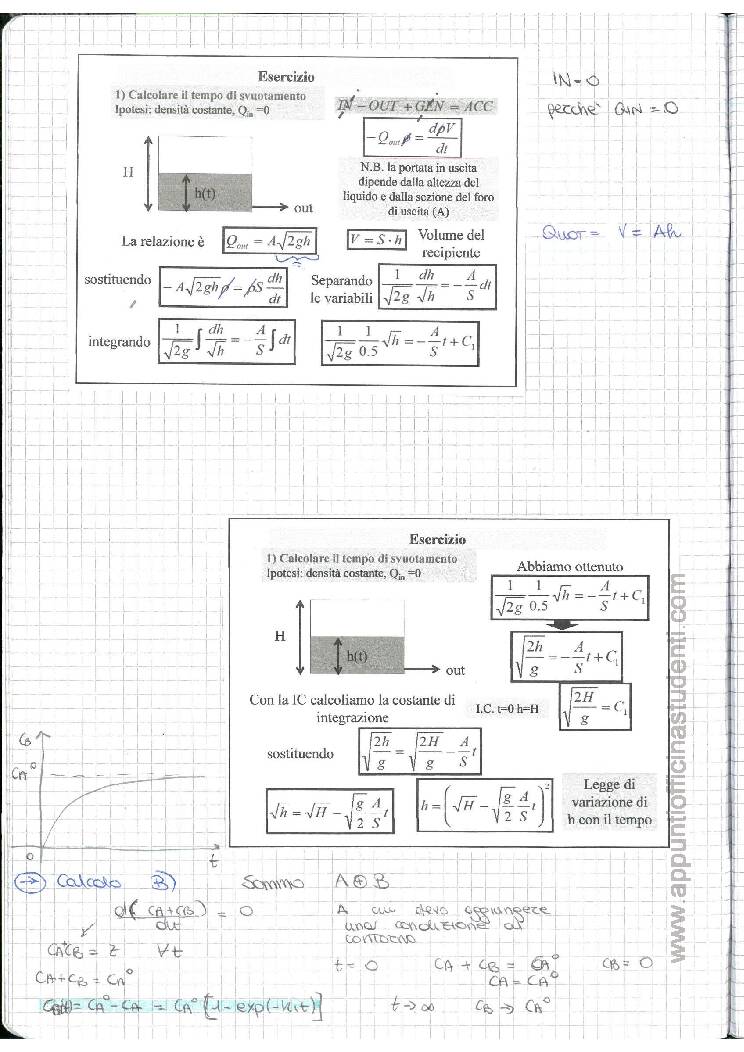 Esercizio
1) Calcolare il tempo di svuotamento
Ipotesi: densità costante, Q_in =0
IN − OUT + GEN = ACC
−Q_out ρ = dρV/dt
H
h(t)
out
N.B. la portata in uscita
dipende dalla altezza del
liquido e dalla sezione del foro
di uscita (A)
La relazione è Q_out = A√(2gh)
V = S · h
Volume del
recipiente
sostituendo −A√(2gh) ρ = ρS dh/dt
Separando
le variabili 1/√(2g) dh/√h = −A/S dt
integrando 1/√(2g) ∫ dh/√h = −A/S ∫ dt
1/√(2g) 1/0.5 √h = −A/S t + C₁
IN = 0
perchè QIN = 0
Quot = V = Ah
Esercizio
1) Calcolare il tempo di svuotamento
Ipotesi: densità costante, Q_in =0
Abbiamo ottenuto
1/√(2g) 1/0.5 √h = −A/S t + C₁
H
h(t)
out
√(2h/g) = −A/S t + C₁
Con la IC calcoliamo la costante di
integrazione
I.C. t=0 h=H
√(2H/g) = C₁
sostituendo √(2h/g) = √(2H/g) − A/S t
√h = √H − √(g/2) A/S t
h = (√H − √(g/2) A/S t)²
Legge di
variazione di
h con il tempo
CB
CA°
0
t
→ Calcolo B)
Sommo A ⊕ B
d(CA+CB)/dt = 0
A cui devo aggiungere
una condizione al
contorno
CA+CB = z ∀t
CA+CB = CA°
t = 0 CA + CB = CA° CB = 0
CA = CA°
CB(t) = CA° − CA = CA° [1 − exp(−k₁t)]
t → ∞ CB → CA°
www.appuntiofficinastudenti.com